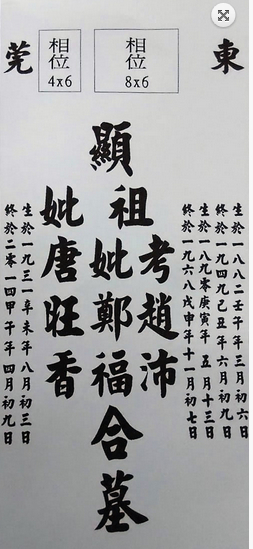 東
相位
8x6
相位
4x6
莞
生於一八八二壬午年三月初六日
終於一九四九己丑年六月初九日
生於一八九零庚寅年五月十三日
終於一九六八戊申年十一月初七日
顯
祖
考趙沛
妣鄭福
妣唐旺香
合墓
生於一九三一辛未年八月初三日
終於二零一四甲午年四月初九日